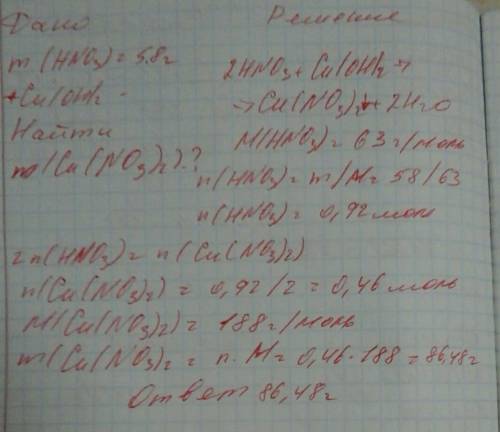 Дано Решение
m(HNO3) = 5.8г
+Cu(OH)2 -
Найти
m(Cu(NO3)2).?
2HNO3 + Cu(OH)2 →
→ Cu(NO3)2↓ + 2H2O
M(HNO3) = 63 г/моль
n(HNO3) = m/M = 58/63
n(HNO3) = 0,92 моль
2n(HNO3) = n(Cu(NO3)2)
n(Cu(NO3)2) = 0,92/2 = 0,46 моль
M(Cu(NO3)2) = 188 г/моль
m(Cu(NO3)2 = n·M = 0,46·188 = 86,48г
Ответ 86,48г